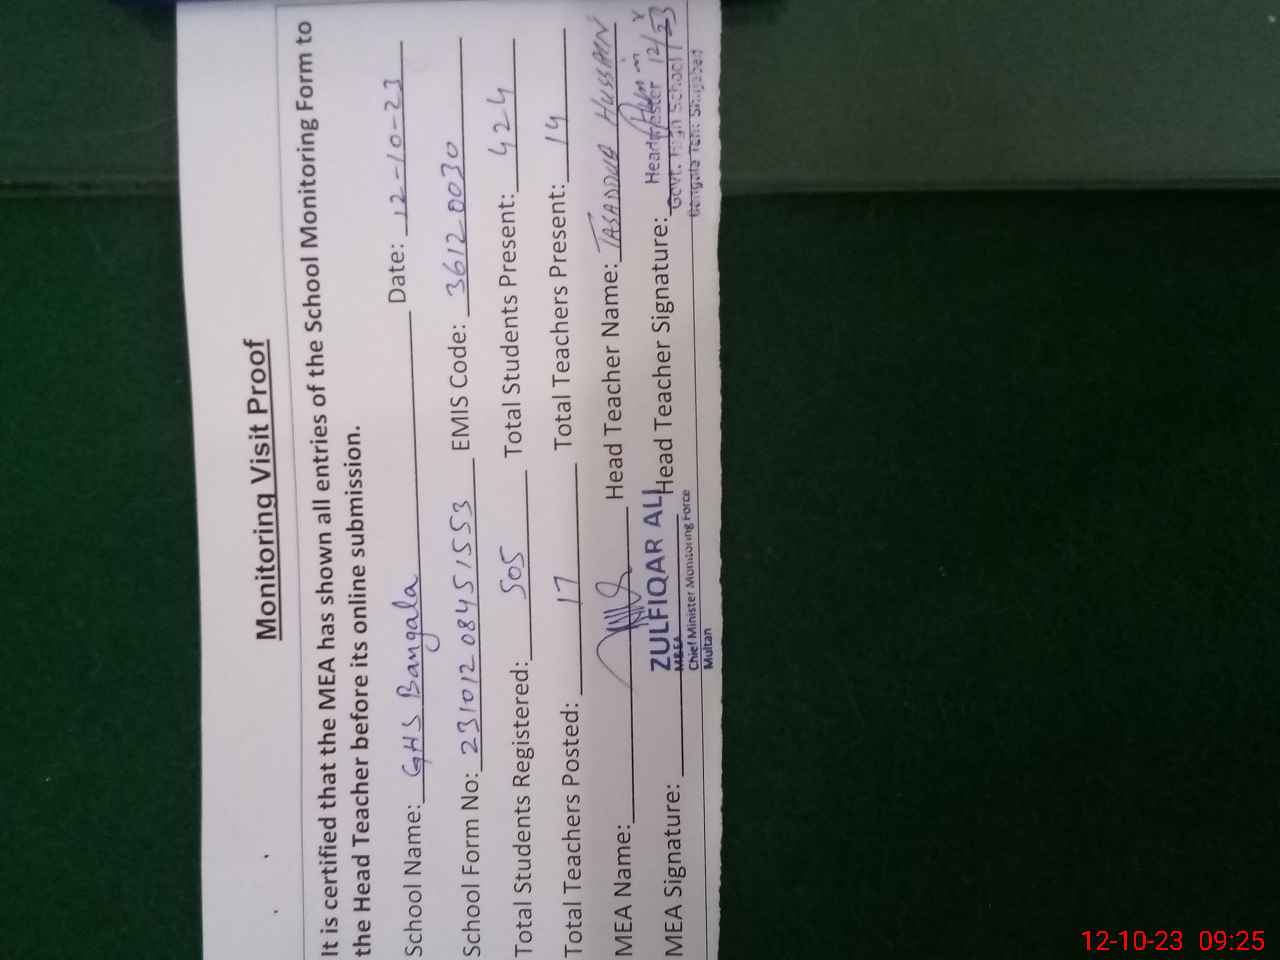 Monitoring Visit Proof
It is certified that the MEA has shown all entries of the School Monitoring Form to
the Head Teacher before its online submission.
School Name: GHS Bangala Date: 12-10-23
School Form No: 231012 08451553 EMIS Code: 36120030
Total Students Registered: 505 Total Students Present: 424
Total Teachers Posted: 17 Total Teachers Present: 14
MEA Name: Head Teacher Name: TASADDUQ HUSSAIN
MEA Signature: ZULFIQAR ALI Head Teacher Signature: Headmaster 12/X/23
MEA Govt. High School
Chief Minister Monitoring Force Bangala Teh: Shujabad
Multan
12-10-23 09:25